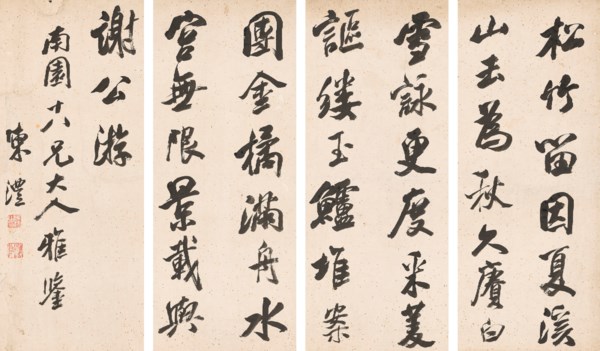 松竹留因夏溪
山去為秋久賡白
雪詠更度采菱
謳縷玉鱸堆案
團金橘滿舟水
宮無限景載與
謝公游
南園十八兄大人雅鑒
陳澧